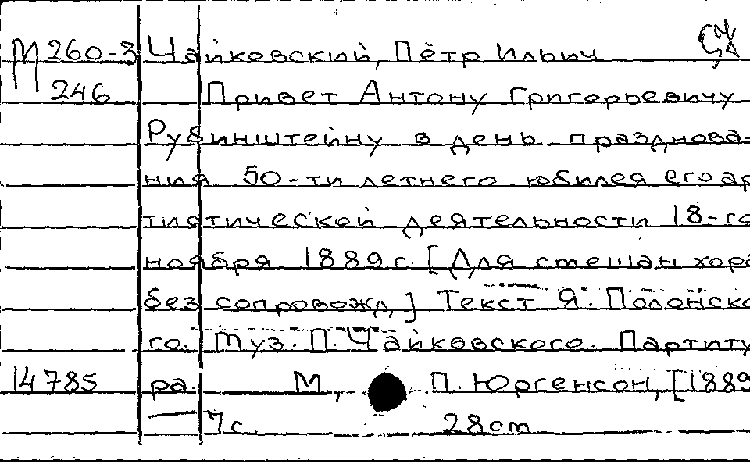 М 260-3 Чайковский, Пётр Ильич
246 Привет Антону Григорьевичу
Рубинштейну в день празднова-
ния 50-ти летнего юбилея его ар
тистической деятельности 18-го
ноября 1889 г. [Для смешан хора
без сопровожд.] Текст Я. Полонско
го. Муз. П. Чайковского. Партиту
14785 ра. М., П. Юргенсон, [1889
7 с. 28 cm